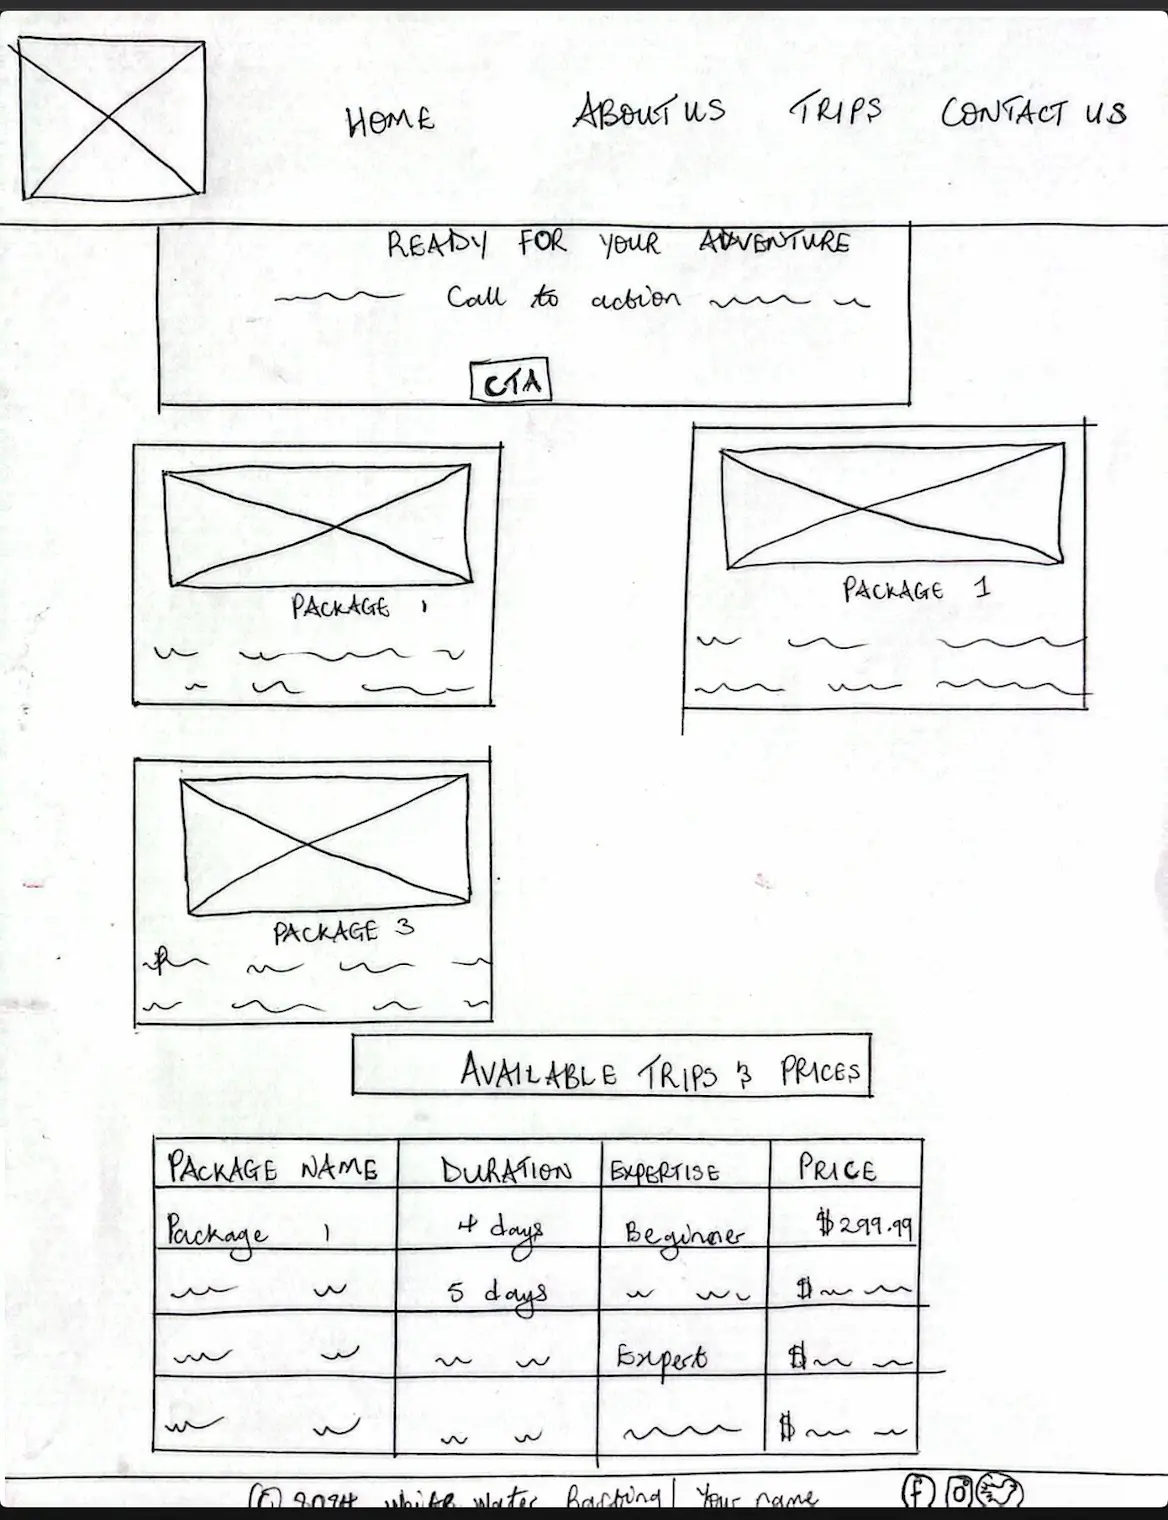 HOME ABOUT US TRIPS CONTACT US
READY FOR YOUR ADVENTURE
Call to action
CTA
PACKAGE 1
PACKAGE 1
PACKAGE 3
AVAILABLE TRIPS & PRICES
PACKAGE NAME DURATION EXPERTISE PRICE
Package 1 4 days Beginner $299.99
5 days $
Expert $
$
© 2024 White Water Rafting | Your name